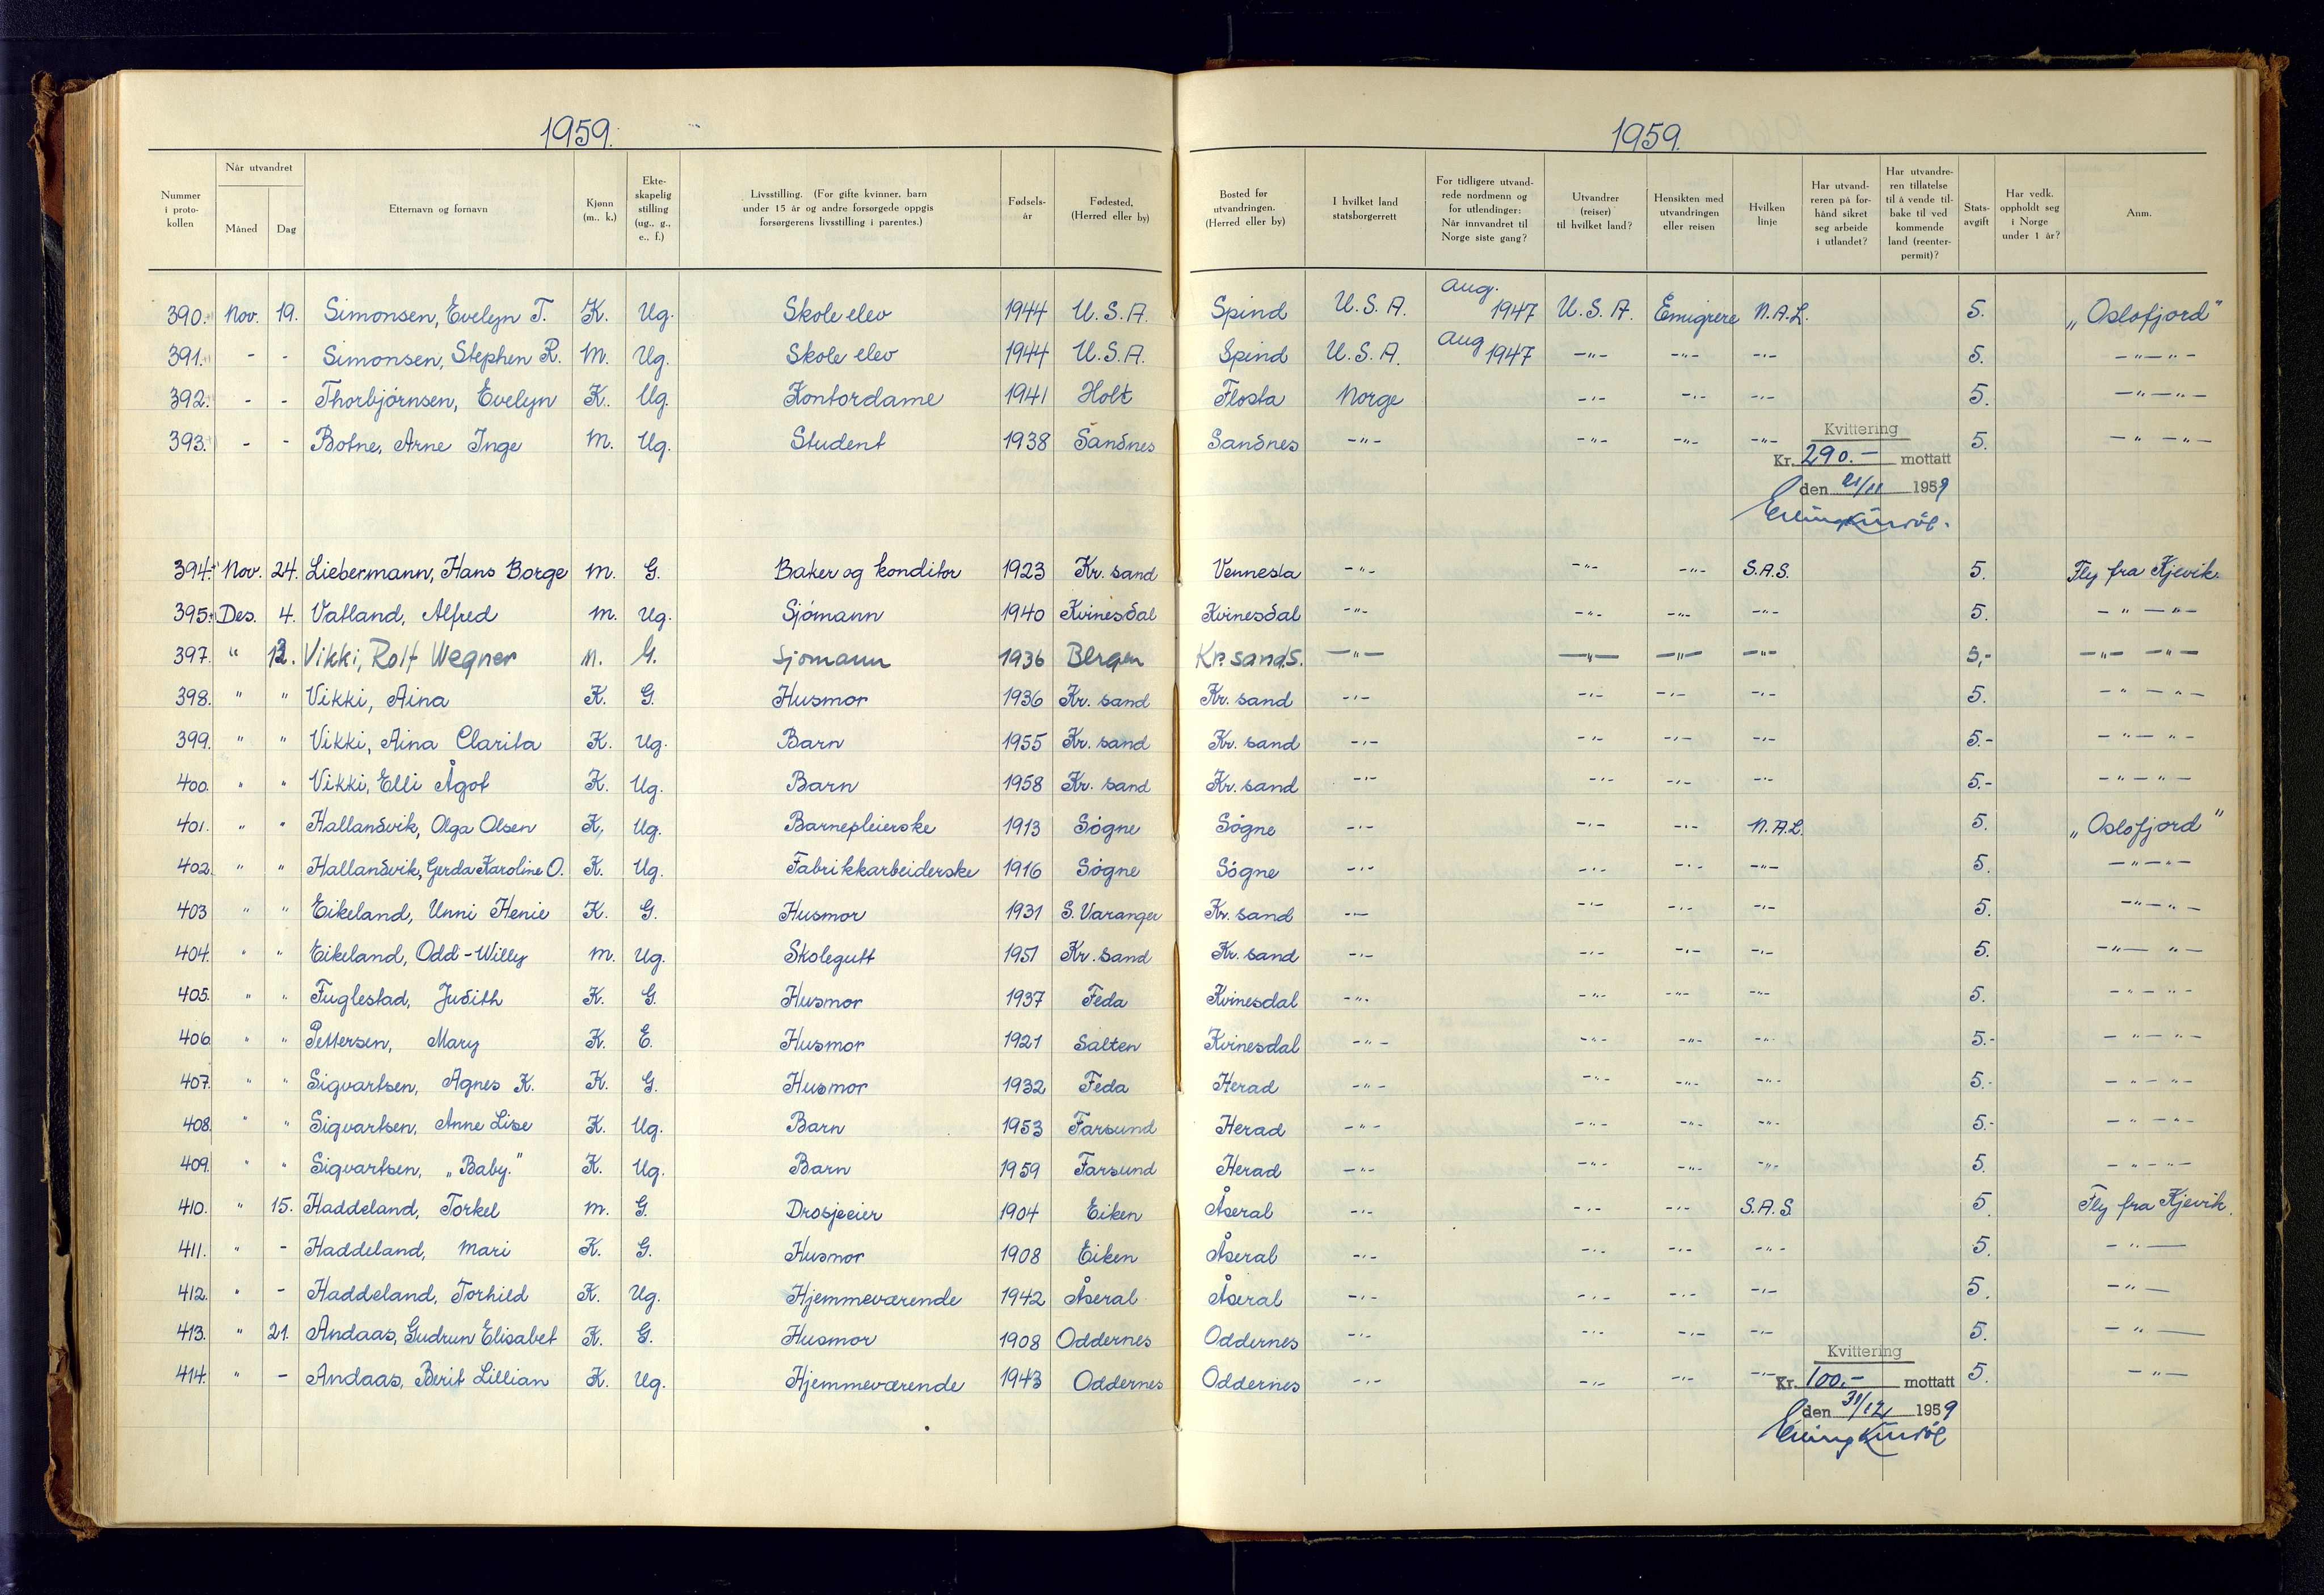 1959.
1959.
Nummer i proto- kollen
Når utvandret
Måned
Dag
Etternavn og fornavn
Kjønn (m., k.)
Ekte- skapelig stilling (ug., g., e., f.)
Livsstilling. (For gifte kvinner, barn under 15 år og andre forsørgede oppgis forsørgerens livsstilling i parentes.)
Fødsels- år
Fødested. (Herred eller by)
Bosted før utvandringen. (Herred eller by)
I hvilket land statsborgerrett
For tidligere utvand- rede nordmenn og for utlendinger: Når innvandret til Norge siste gang?
Utvandrer (reiser) til hvilket land?
Hensikten med utvandringen eller reisen
Hvilken linje
Har utvand- reren på for- hånd sikret seg arbeide i utlandet?
Har utvandre- ren tillatelse til å vende til- bake til ved kommende land (reenter- permit)?
Stats- avgift
Har vedk. oppholdt seg i Norge under 1 år?
Anm.
390. Nov. 19. Simonsen, Evelyn T. K. Ug. Skole elev 1944 U.S.A. Spind U.S.A. Aug. 1947 U.S.A. Emigrere N.A.L. 5. „Oslofjord"
391. - - Simonsen, Stephen R. M. Ug. Skole elev 1944 U.S.A. Spind U.S.A. Aug 1947 -"- -"- -"- 5. -"-"-
392. - - Thorbjørnsen, Evelyn K. Ug. Kontordame 1941 Holt Flosta Norge -"- -"- -"- 5. -"-"-
393. - - Botne, Arne Inge M. Ug. Student 1938 Sandnes Sandnes -"- -"- -"- -"- 5. -"-"-
Kvittering
Kr. 290.- mottatt
den 21/11 1959
394. Nov. 24. Liebermann, Hans Borge M. G. Baker og konditor 1923 Kr. sand Vennesla -"- -"- -"- S.A.S. 5. Fly fra Kjevik.
395. Des. 4. Vatland, Alfred M. Ug. Sjømann 1940 Kvinesdal Kvinesdal -"- -"- -"- -"- 5. -"-"-
397. " 12. Vikki, Rolf Wegner M. G. Sjømann 1936 Bergen Kr. sand S. -"- -"- -"- -"- 5,- -"- -"-
398. " " Vikki, Aina K. G. Husmor 1936 Kr. sand Kr. sand -"- -"- -"- -"- 5. -"-"-
399. " " Vikki, Aina Clarita K. Ug. Barn 1955 Kr. sand Kr. sand -"- -"- -"- -"- 5.- -"-"-
400. " " Vikki, Elli Ågot K. Ug. Barn 1958 Kr. sand Kr. sand -"- -"- -"- -"- 5.- -"-"-
401. " " Hallandvik, Olga Olsen K. Ug. Barnepleierske 1913 Søgne Søgne -"- -"- -"- N.A.L. 5. „Oslofjord"
402. " " Hallandvik, Gerda Karoline O. K. Ug. Fabrikkarbeiderske 1916 Søgne Søgne -"- -"- -"- -"- 5. -"-"-
403 " " Eikeland, Unni Henie K. G. Husmor 1931 S. Varanger Kr. sand -"- -"- -"- -"- 5. -"-"-
404. " " Eikeland, Odd-Willy M. Ug. Skolegutt 1951 Kr. sand Kr. sand -"- -"- -"- -"- 5. -"-"-
405. " " Fuglestad, Judith K. G. Husmor 1937 Feda Kvinesdal -"- -"- -"- -"- 5. -"-"-
406 " " Pettersen, Mary K. E. Husmor 1921 Salten Kvinesdal -"- -"- -"- -"- 5.- -"-"-
407. " " Sigvartsen, Agnes K. K. G. Husmor 1932 Feda Herad -"- -"- -"- -"- 5.- -"-"-
408. " " Sigvartsen, Anne Lise K. Ug. Barn 1953 Farsund Herad -"- -"- -"- -"- 5.- -"-"-
409. " " Sigvartsen, „Baby." K. Ug. Barn 1959 Farsund Herad -"- -"- -"- -"- 5. -"-"-
410. " 15. Haddeland, Torkel M. G. Drosjeeier 1904 Eiken Åseral -"- -"- -"- S.A.S. 5. Fly fra Kjevik.
411. " - Haddeland, Mari K. G. Husmor 1908 Eiken Åseral -"- -"- -"- -"- 5. -"-
412. " - Haddeland, Torhild K. Ug. Hjemmeværende 1942 Åseral Åseral -"- -"- -"- -"- 5. -"-
413. " 21. Andaas, Gudrun Elisabet K. G. Husmor 1908 Oddernes Oddernes -"- -"- -"- -"- 5. -"-
414. " - Andaas, Berit Lillian K. Ug. Hjemmeværende 1943 Oddernes Oddernes -"- -"- -"- -"- 5. -"-
Kvittering
Kr. 100.- mottatt
den 31/12 1959